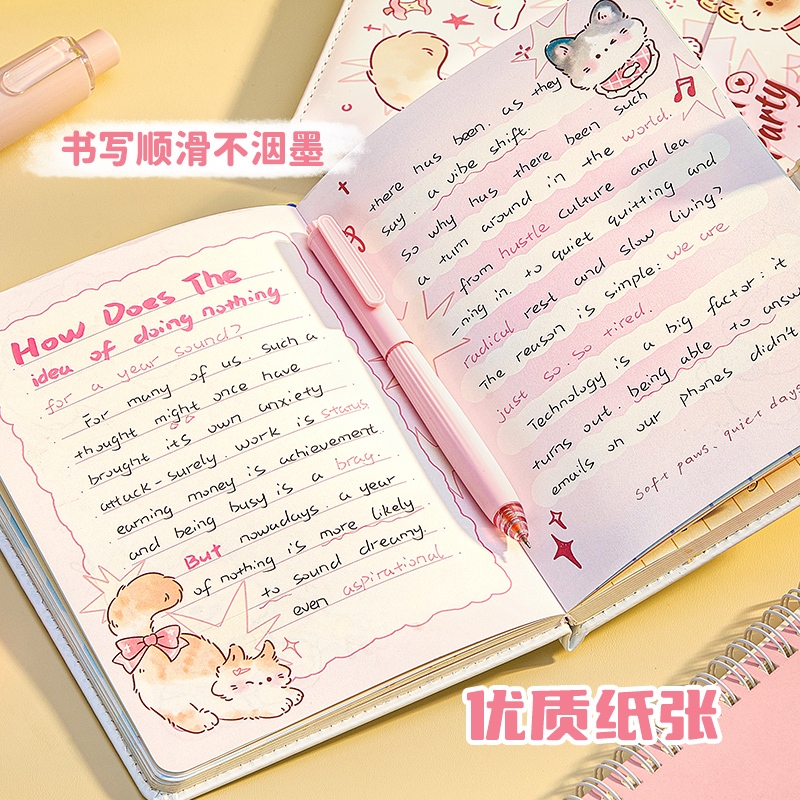 书写顺滑不洇墨
How Does The
idea of doing nothing
for a year sound?
For many of us. such a
thought might once have
brought its own anxiety
attack-surely. work is status
earning money is achievement.
and being busy is a brag.
But nowadays. a year
of nothing is more likely
to sound dreamy.
even aspirational
there has been. as they
say. a vibe shift.
so why has there been such
a turn around in the world.
from hustle culture and lea
-ning in. to quiet quitting and
radical rest and slow living?
The reason is simple: we are
just so. so tired.
Technology is a big factor: it
turns out. being able to answ
emails on our phones didn't
Soft paws, quiet days
arty
优质纸张